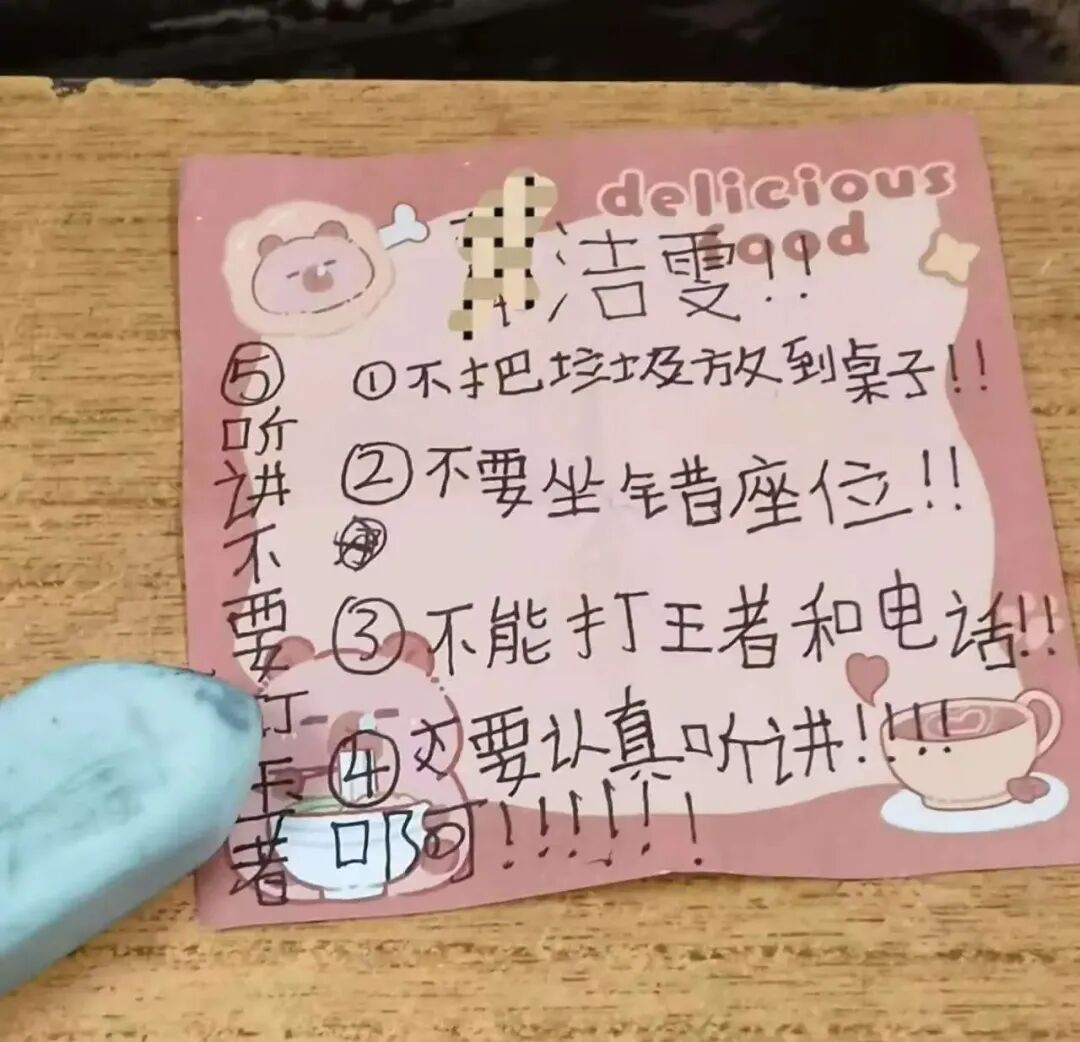 delicious
food
洁雯!!
①不把垃圾放到桌子!!
②不要坐错座位!!
③不能打王者和电话!!
④要认真听讲!!!!
⑤听讲不要打王者!!!!!!